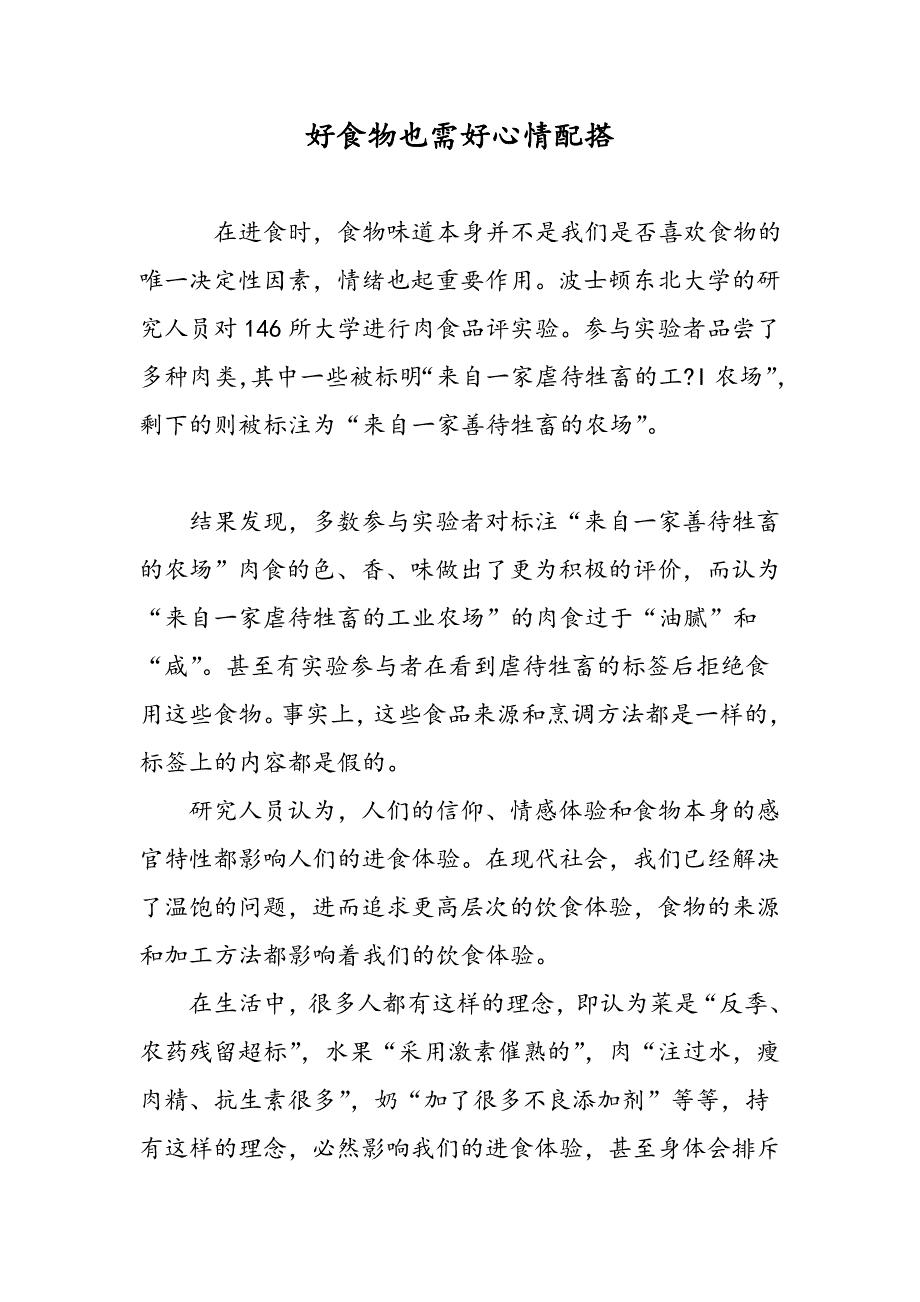 好食物也需好心情配搭
在进食时，食物味道本身并不是我们是否喜欢食物的
唯一决定性因素，情绪也起重要作用。波士顿东北大学的研
究人员对 146 所大学进行肉食品评实验。参与实验者品尝了
多种肉类，其中一些被标明“来自一家虐待牲畜的工?I 农场”，
剩下的则被标注为“来自一家善待牲畜的农场”。
结果发现，多数参与实验者对标注“来自一家善待牲畜
的农场”肉食的色、香、味做出了更为积极的评价，而认为
“来自一家虐待牲畜的工业农场”的肉食过于“油腻”和
“咸”。甚至有实验参与者在看到虐待牲畜的标签后拒绝食
用这些食物。事实上，这些食品来源和烹调方法都是一样的，
标签上的内容都是假的。
研究人员认为，人们的信仰、情感体验和食物本身的感
官特性都影响人们的进食体验。在现代社会，我们已经解决
了温饱的问题，进而追求更高层次的饮食体验，食物的来源
和加工方法都影响着我们的饮食体验。
在生活中，很多人都有这样的理念，即认为菜是“反季、
农药残留超标”，水果“采用激素催熟的”，肉“注过水，瘦
肉精、抗生素很多”，奶“加了很多不良添加剂”等等，持
有这样的理念，必然影响我们的进食体验，甚至身体会排斥